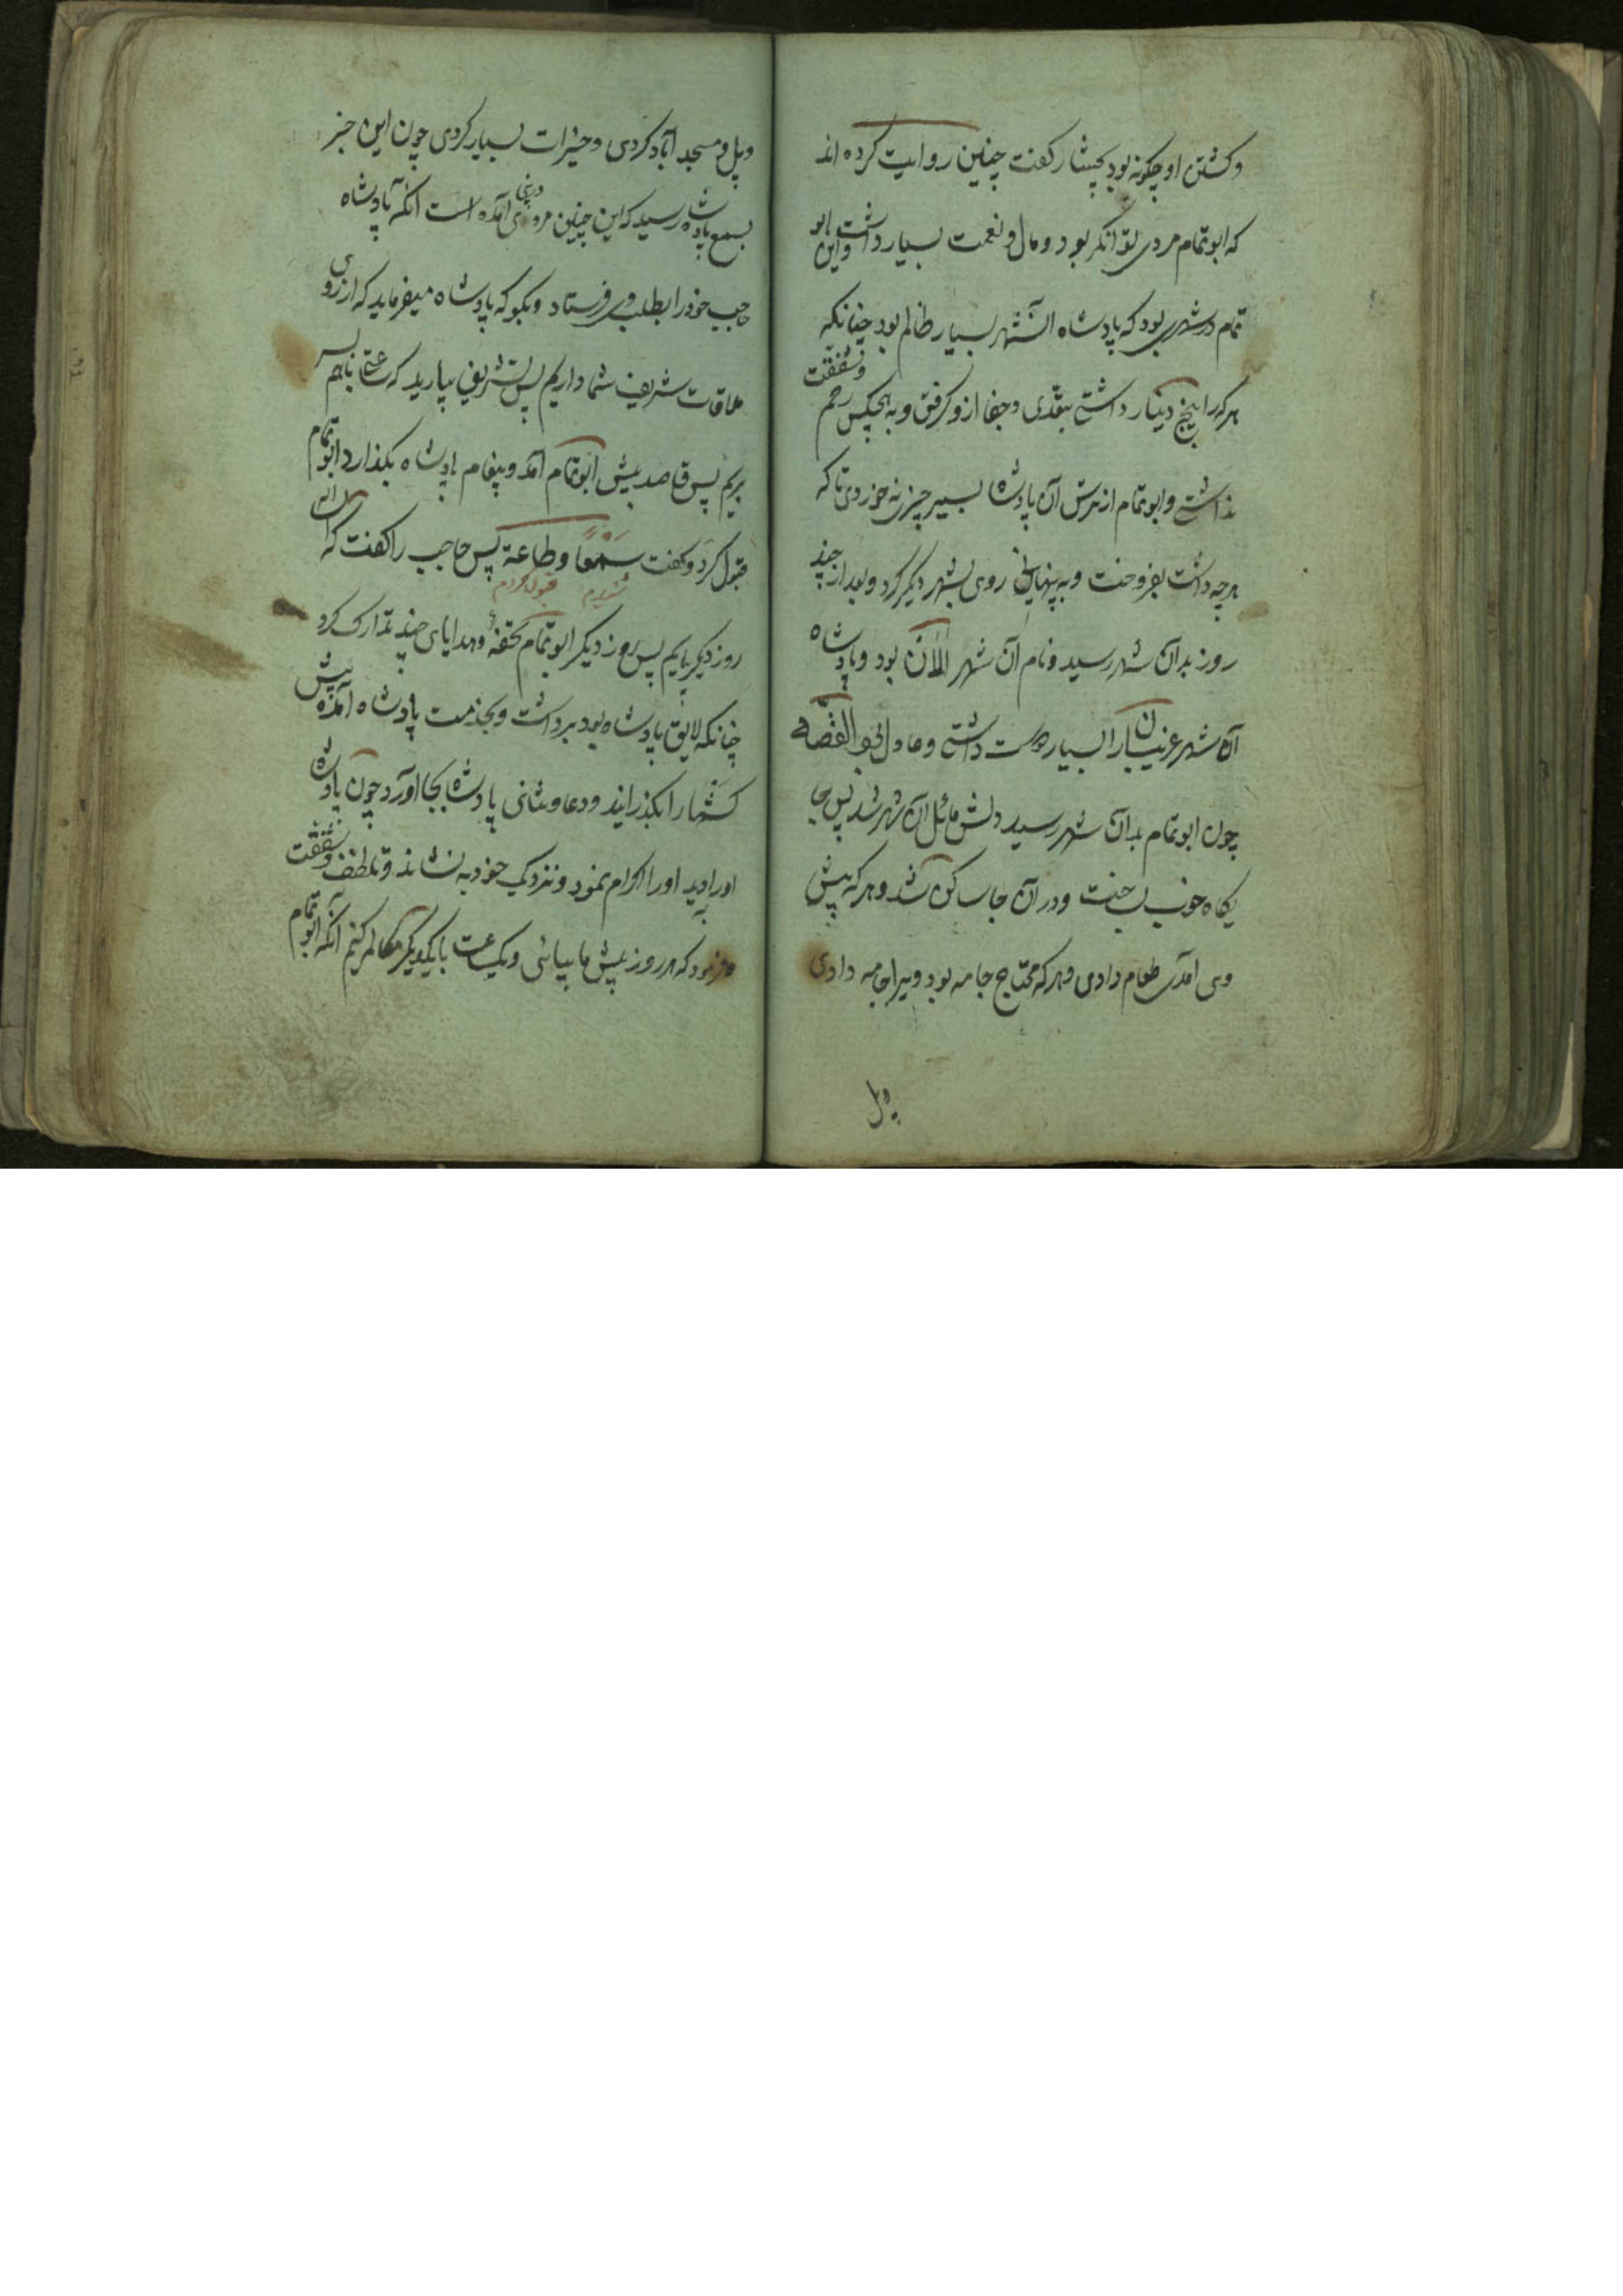 وکشتن او چکونه بود بختیار کفت چنین روایت کرده اند
که ابوتمام مردی توانکر بود و مال و نعمت بسیار داشت و این ابو
تمام در شهری بود که پادشاه آنشهر بسیار ظالم بود چنانکه
هر که را پنج دینار داشتی بتعدی و جفا ازو کرفتی و به هیچکس رحم و شفقت
نداشتی و ابوتمام از ترس آن پادشاه بسیر چیزی نه خوردی تا که
هر چه داشت بفروخت و به پنهانی روی بشهر دیکر کرد و بعد از چند
روز بدان شهر رسید و نام آن شهر الان بود و پادشاه
آن شهر غریبان را بسیار دوست داشتی و عادل بود القصه
چون ابوتمام بدان شهر رسید دلش مائل آن شهر شد پس جا
یکاه خوب بساخت و در آن جا ساکن شد و هر که پیش
وی آمدی طعام دادی و هر که محتاج جامه بود ویرا جامه دادی
و پل
و پل و مسجد آباد کردی و خیرات بسیار کردی چون این خبر
بسمع پادشاه رسید که این چنین مردی درینجا آمده است آنکه پادشاه
حاجب خود را بطلب وی فرستاد و بکو که پادشاه میفرماید که آرزوی
ملاقات شریف شما داریم پس تشریف بیارید که ساعتی باهم بسر
بریم پس قاصد پیش ابوتمام آمد و پیغام پادشاه بکذارد ابوتمام
قبول کرد و کفت سمعا و طاعة پس حاجب را کفت که
شنیدم قبول کردم
روز دیکر بیایم پس روز دیکر ابوتمام تحفه و هدایای چند تدارک کرد
چنانکه لایق پادشاه بود برداشت و بخدمت پادشاه آمده پیش
کشها را بکذرانید و دعا و ثنائی پادشاه بجا آورد چون پادشاه
اورا دید اورا اکرام نمود و نزدیک خود به نشاند و تلطف و شفقت
فرمود که هر روز پیش ما بیائی و یکساعت با یکدیکر مکالمه کنیم آنکه ابوتمام